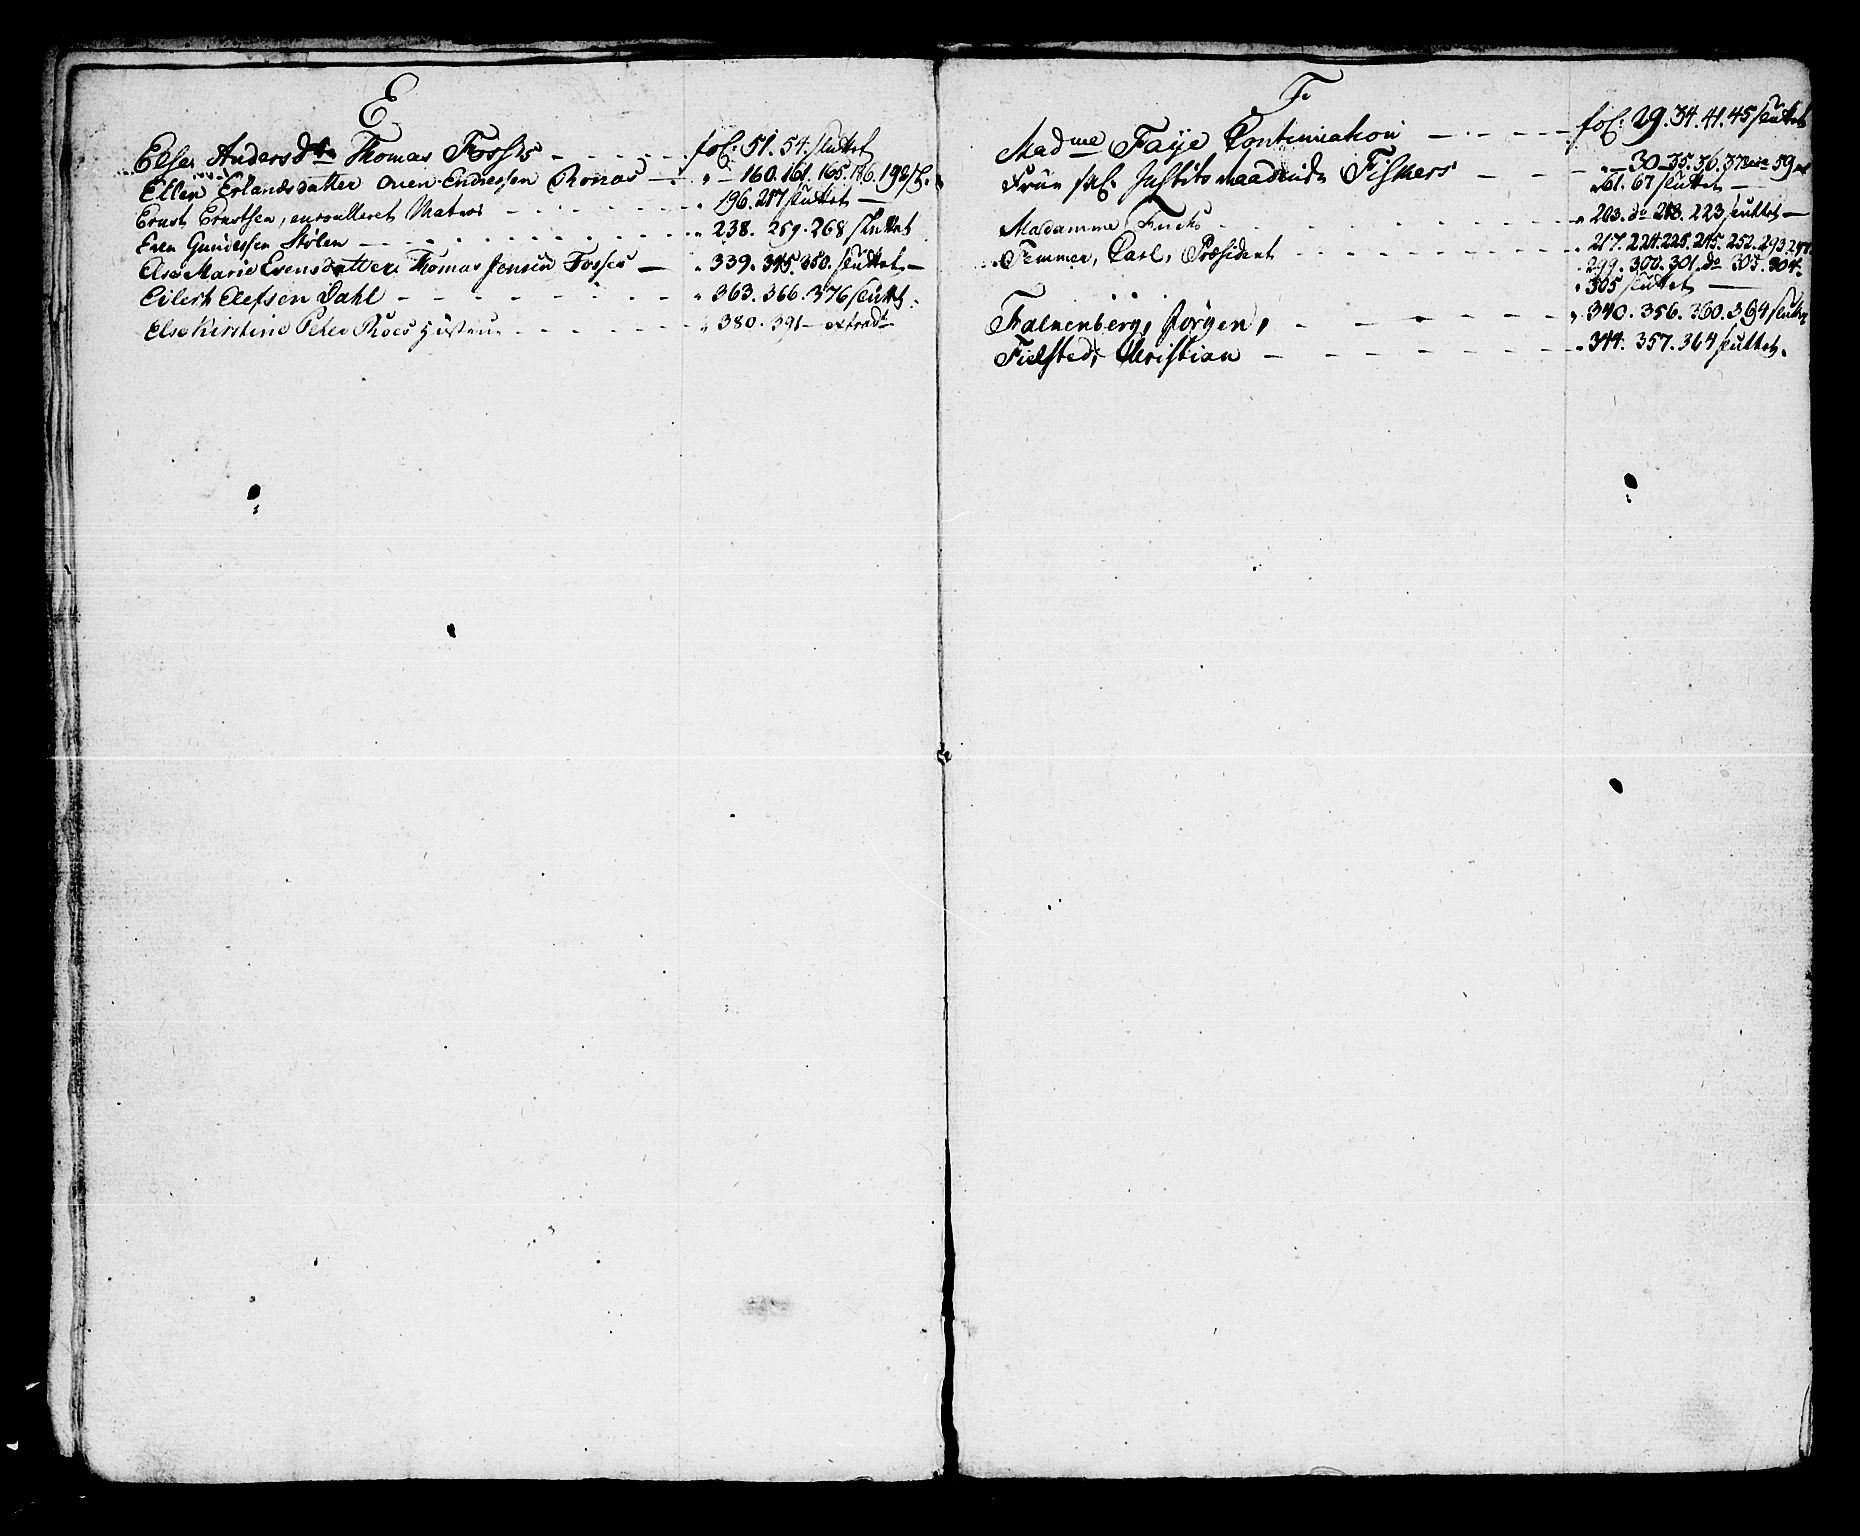 E
Else Anders Dtr Thomas Fosses - - - - - fol. 51. 54. sluttet
Ellen Erlandsdatter Oven Endressen Ronas - " - 160. 161. 165. 186. 198
Ernst Erntsen, enroulleret Matros - - - - - " 196. 217 sluttet -
Even Gundersen Stølen - - - - - " 238. 259. 268 sluttet
Else Marie Evensdatter Thomas Jensen Fosses - " 339. 345. 350. sluttet -
Eilert Elefsen Dahl - - - - - " 363. 366. 376 sluttet.
Else Kirstine Peter Roes Hüstrue - - - - - " 380. 391 - extradt
F.
Madme Faÿe Continuation - - - - fol. 29. 34. 41. 45 sluttet
Frue sal. Justitsraadinde Fiskers - - - - " - 30 - 35. 36. 37 59
" 61. 67 sluttet -
Madamme Fucks - - - - - " 203. do 218. 223 sluttet -
Femmer, Carl, Præsident - - - - - " 217. 224. 225. 245. 252. 293. 297
" 299. 300. 301. do 303. 304.
" 305 sluttet -
Falkenberg, Jørgen, - - - - - " 340. 356. 360. 364 sluttet
Fielsted, Christian - - - - - " 344. 357. 364 sluttet.